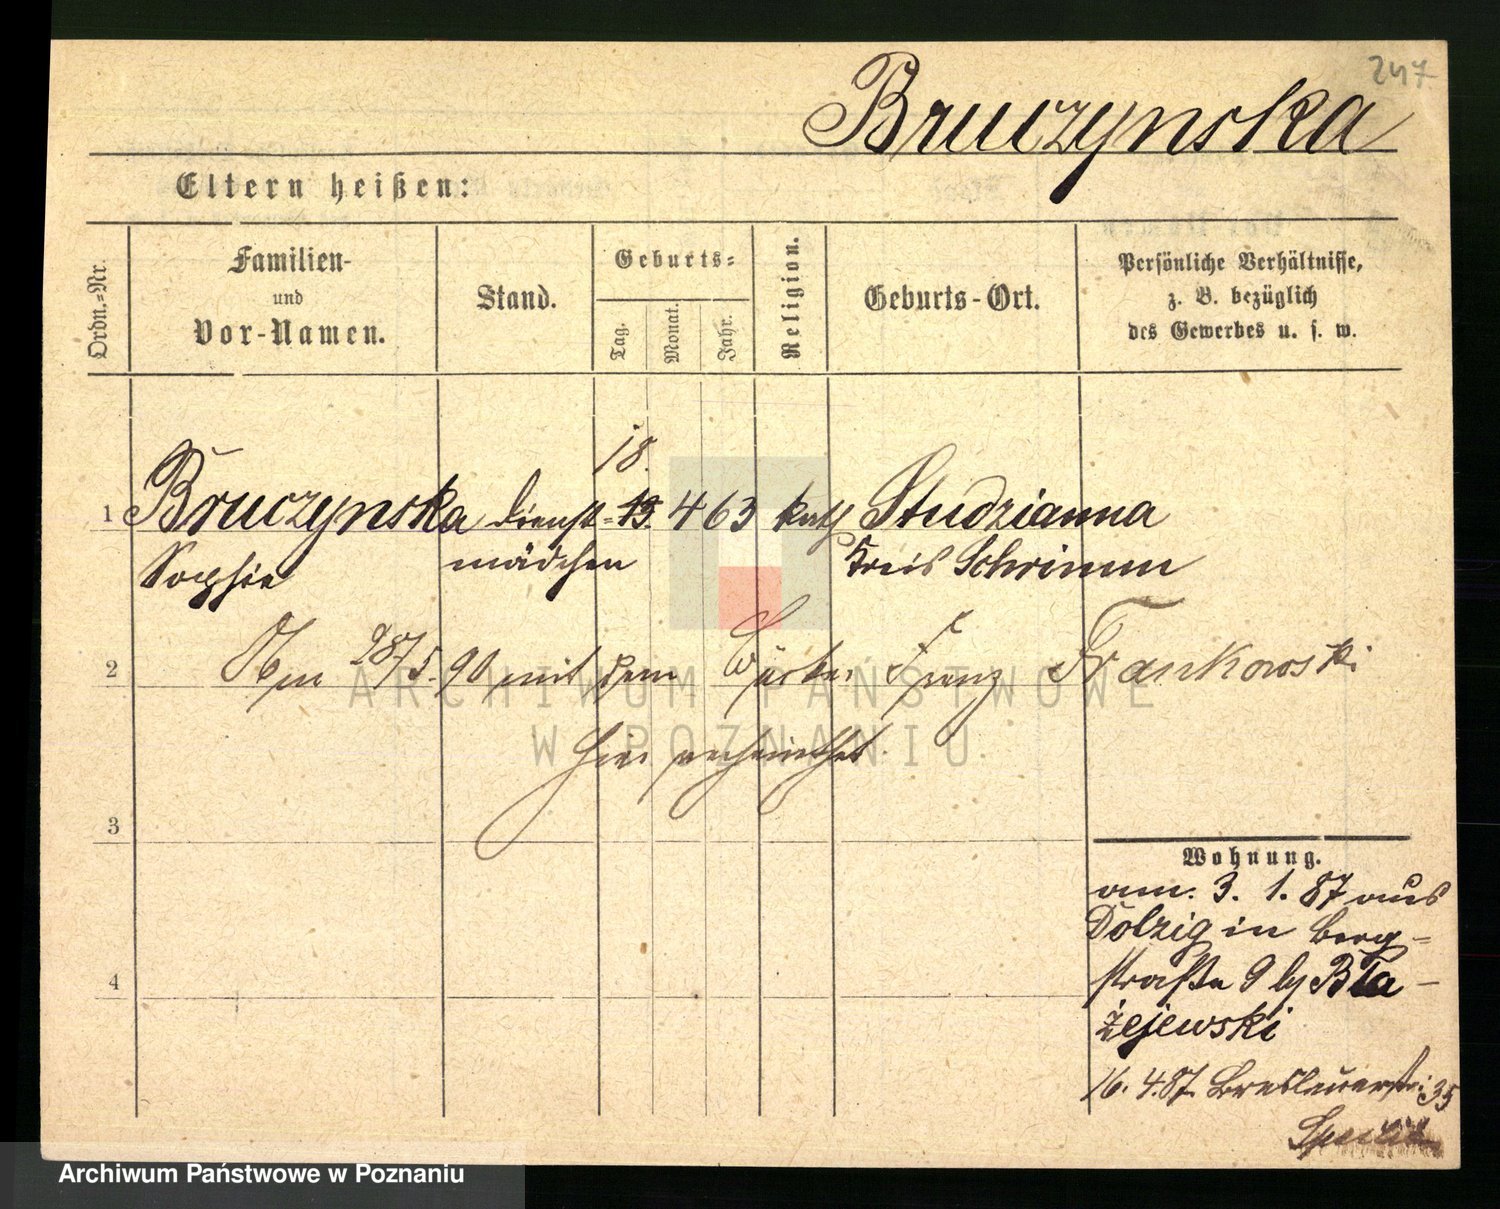 247
Bruczynska
Eltern heißen:
Ordn.=Nr.
Familien-
und
Vor-Namen.
Stand.
Geburts=
Tag.
Monat.
Jahr.
Religion.
Geburts-Ort.
Persönliche Verhältnisse,
z. B. bezüglich
des Gewerbes u. s. w.
18.
1 Bruczynska Dienst= 13. 4 63 kath Studzianna
Sophie mädchen Kreis Schrimm
2 Am 28/5. 90 mit dem Franz Frankowski
hier verheirathet.
3
Wohnung.
am. 3. 1. 87 aus
Dolzig in Berg-
straße 9 by Bła-
4
żejewski
16. 4. 87. Breslauerstr: 35
ARCHIWUM PAŃSTWOWE
W POZNANIU
Archiwum Państwowe w Poznaniu